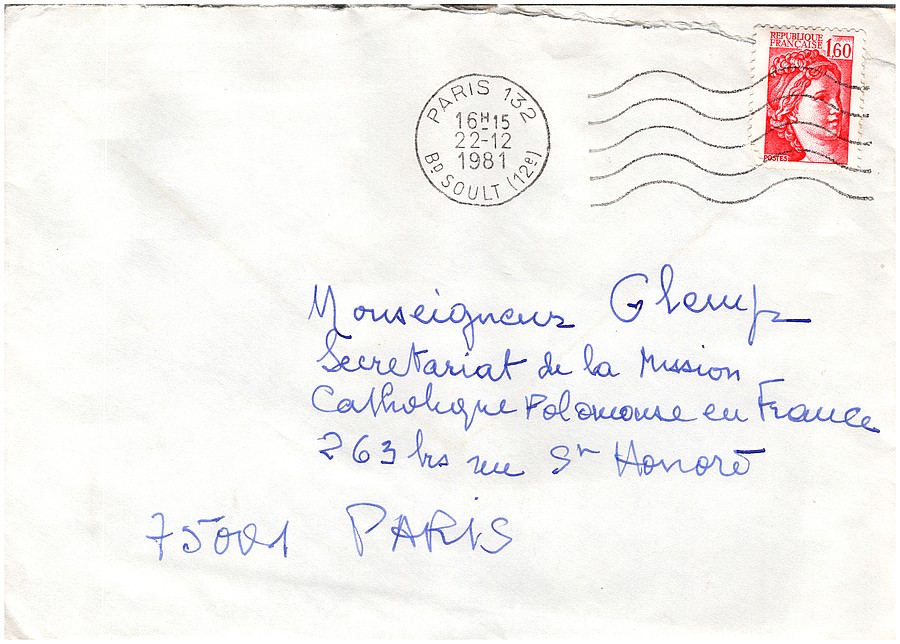 REPUBLIQUE
FRANÇAISE 1,60
POSTES
PARIS 132
16H15
22-12
1981
BD SOULT (12e)
Monseigneur Glemp
Secretariat de la Mission
Catholique Polonaise en France
263 bis rue St Honoré
75001 PARIS